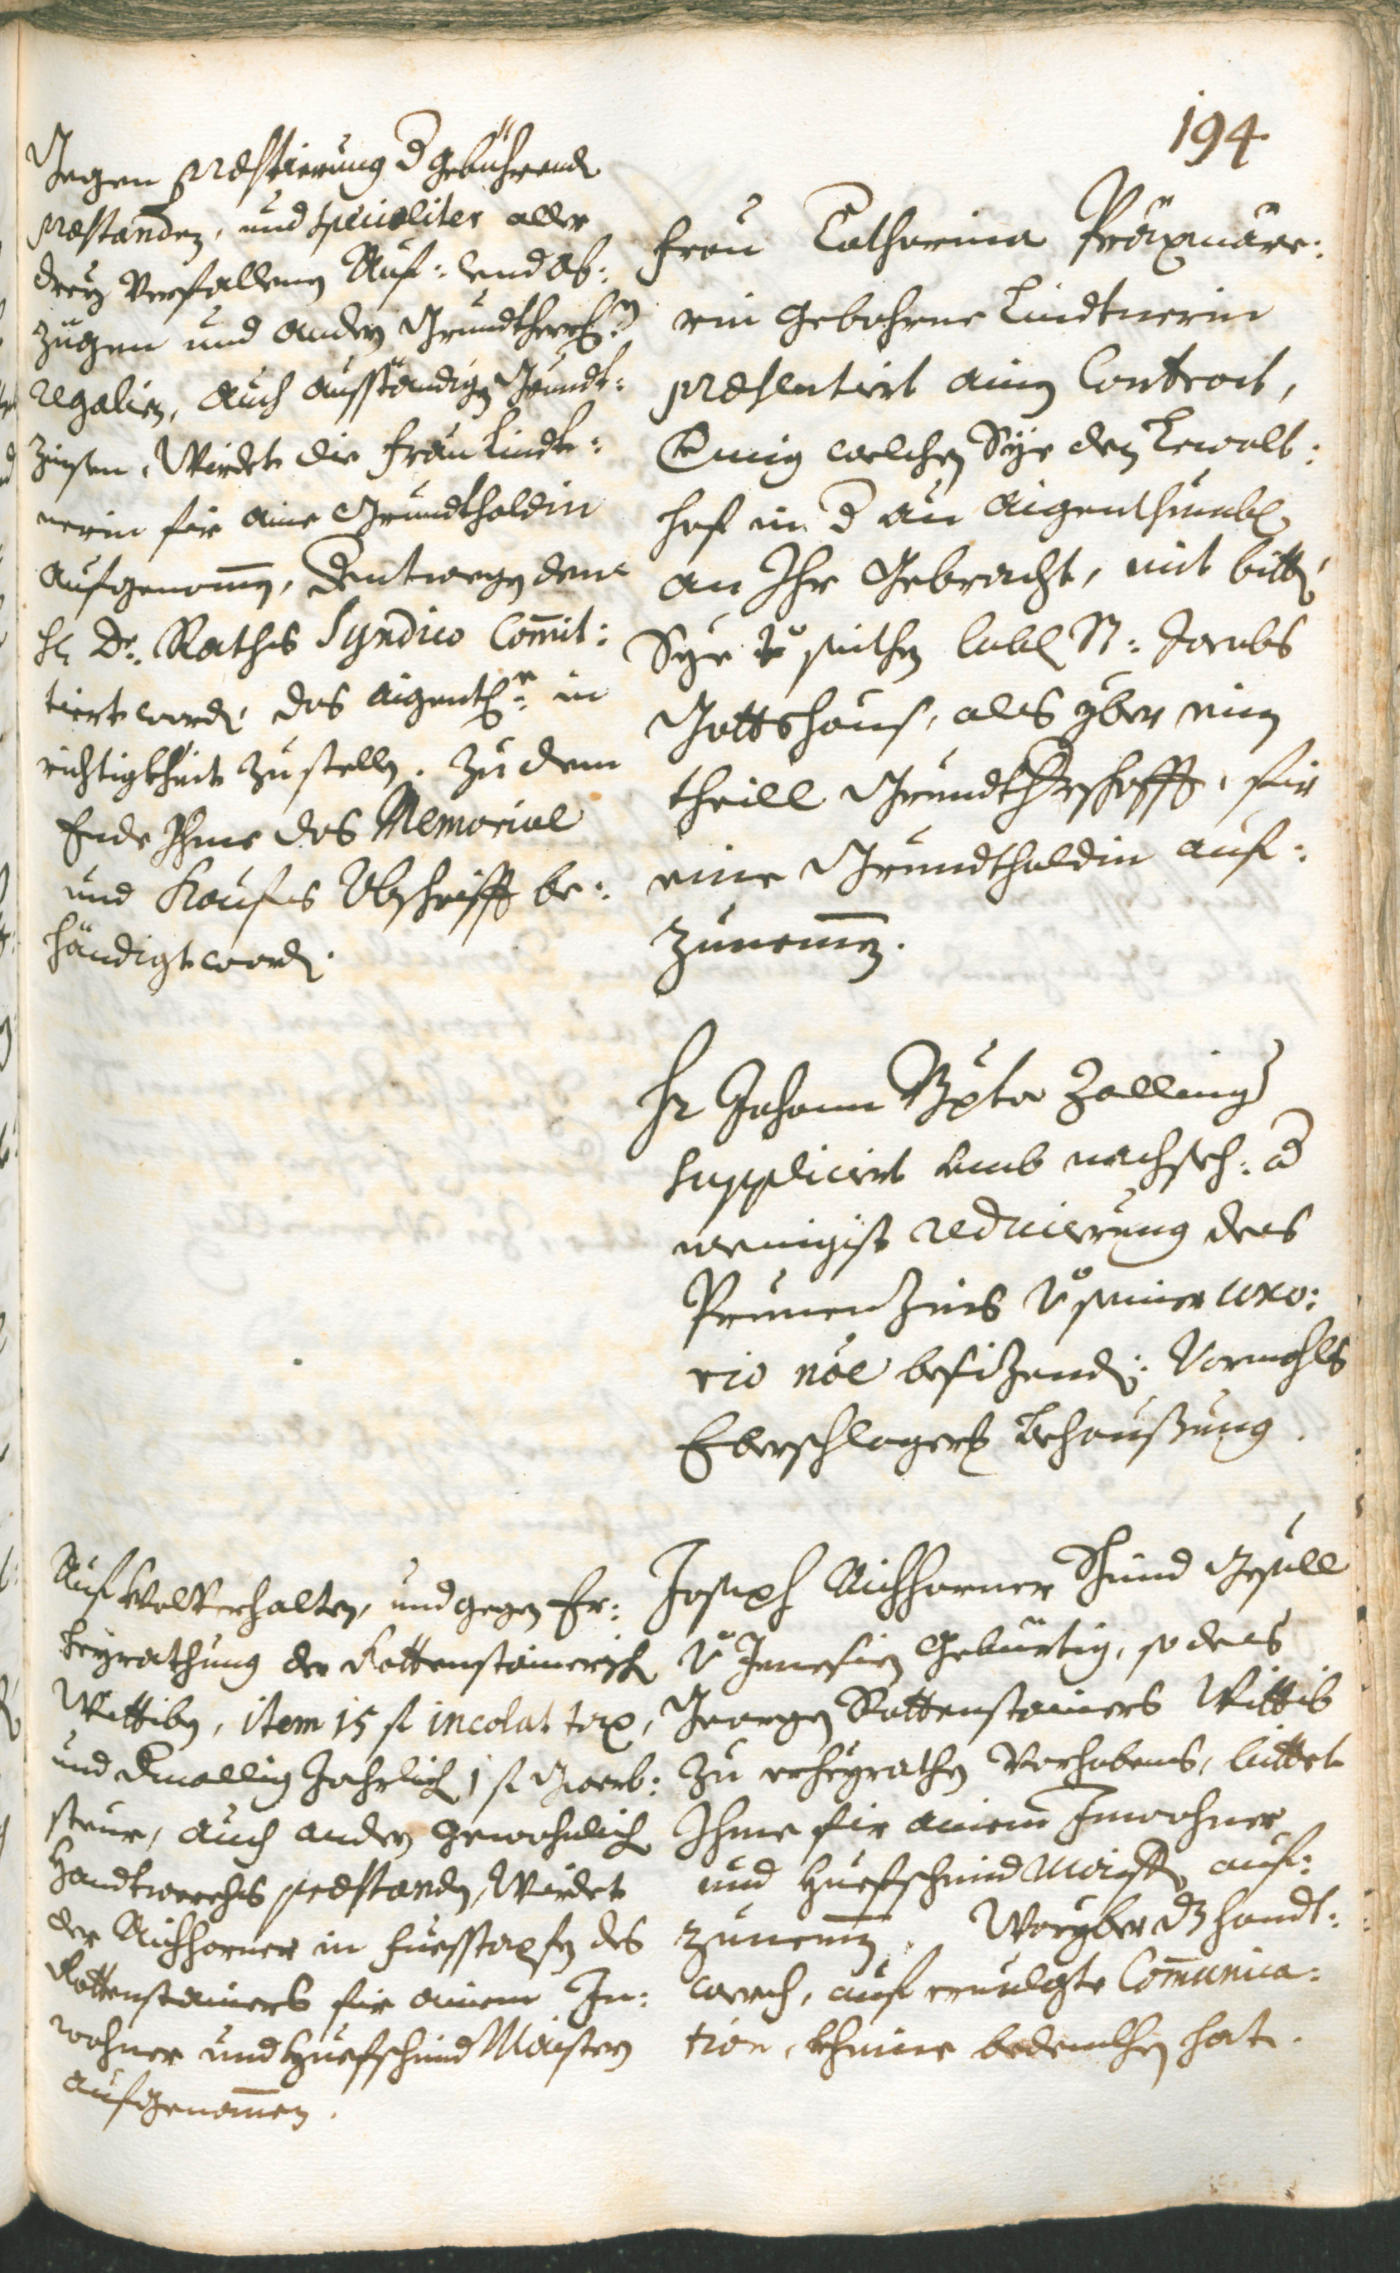 194
Gegen præstierung d gebührendn
præstanden, und specialiter aller
drey verfallenen Auf: und Ab:
zügen und andern Grundtherrl:n
regalien, auch ausständigen Grundt:
zinsen, Würdet die Frau Lindt:
nerin für aine Grundtholdin
aufgenomen, Dentwegen deme
H: Dr. Raths Syndico Comit:
tiert wordn, das aigentl:e in
richtigkheit zustellen. Zu dem
Ende Ihme das Memorial
und Kaufs Abschrifft be:
händigt wordn.
Frau Catharina Präxmare:
rin gebohrne Lindtnerin
præsentirt ainen Contract,
Crafft welchen Sye den
hof in d Au aigenthumbl.
an Ihr gebracht, mit bitt,
Sye von seithen labl. St: Jacobs
Gottshaus, als yber ein
theill Grundtherschafft, für
eine Grundtholdin auf:
zunemen.
Hr Johann Bapta Zallinger
supplicirt umb nachseh: od
wenigist reducierung des
Prunen Zins von seiner uxo:
rio noe besizendn: vormahls
Eberschlagers behaußung.
Auf wolverhalten, und gegen Er:
heyrathung der Rottenstainerisch
Wittiben, item 15 f incolat tax,
und Dmallig Jahrlich 1 f Gwerb:
steur, auch andern gewohnlich
Handtwerchs præstanden, Würdet
der Aichhorner in fuesstapfen des
Rottenstainers für ainen In:
wohner und Huefschmid Maistern
aufgenomen.
Joseph Aichhorner Schmid Gesöll
von Jenesien gebürtig, so des
Georgen Rottenstainers Wittib
zu erheyrathen Vorhabens, bittet
Ihme für ainem Inwohner
und Huefschmid Maister auf:
zunemen. Woryber dz handt:
werch, auf ervolgte Comunica:
tion, kheine bedenkhen hat.